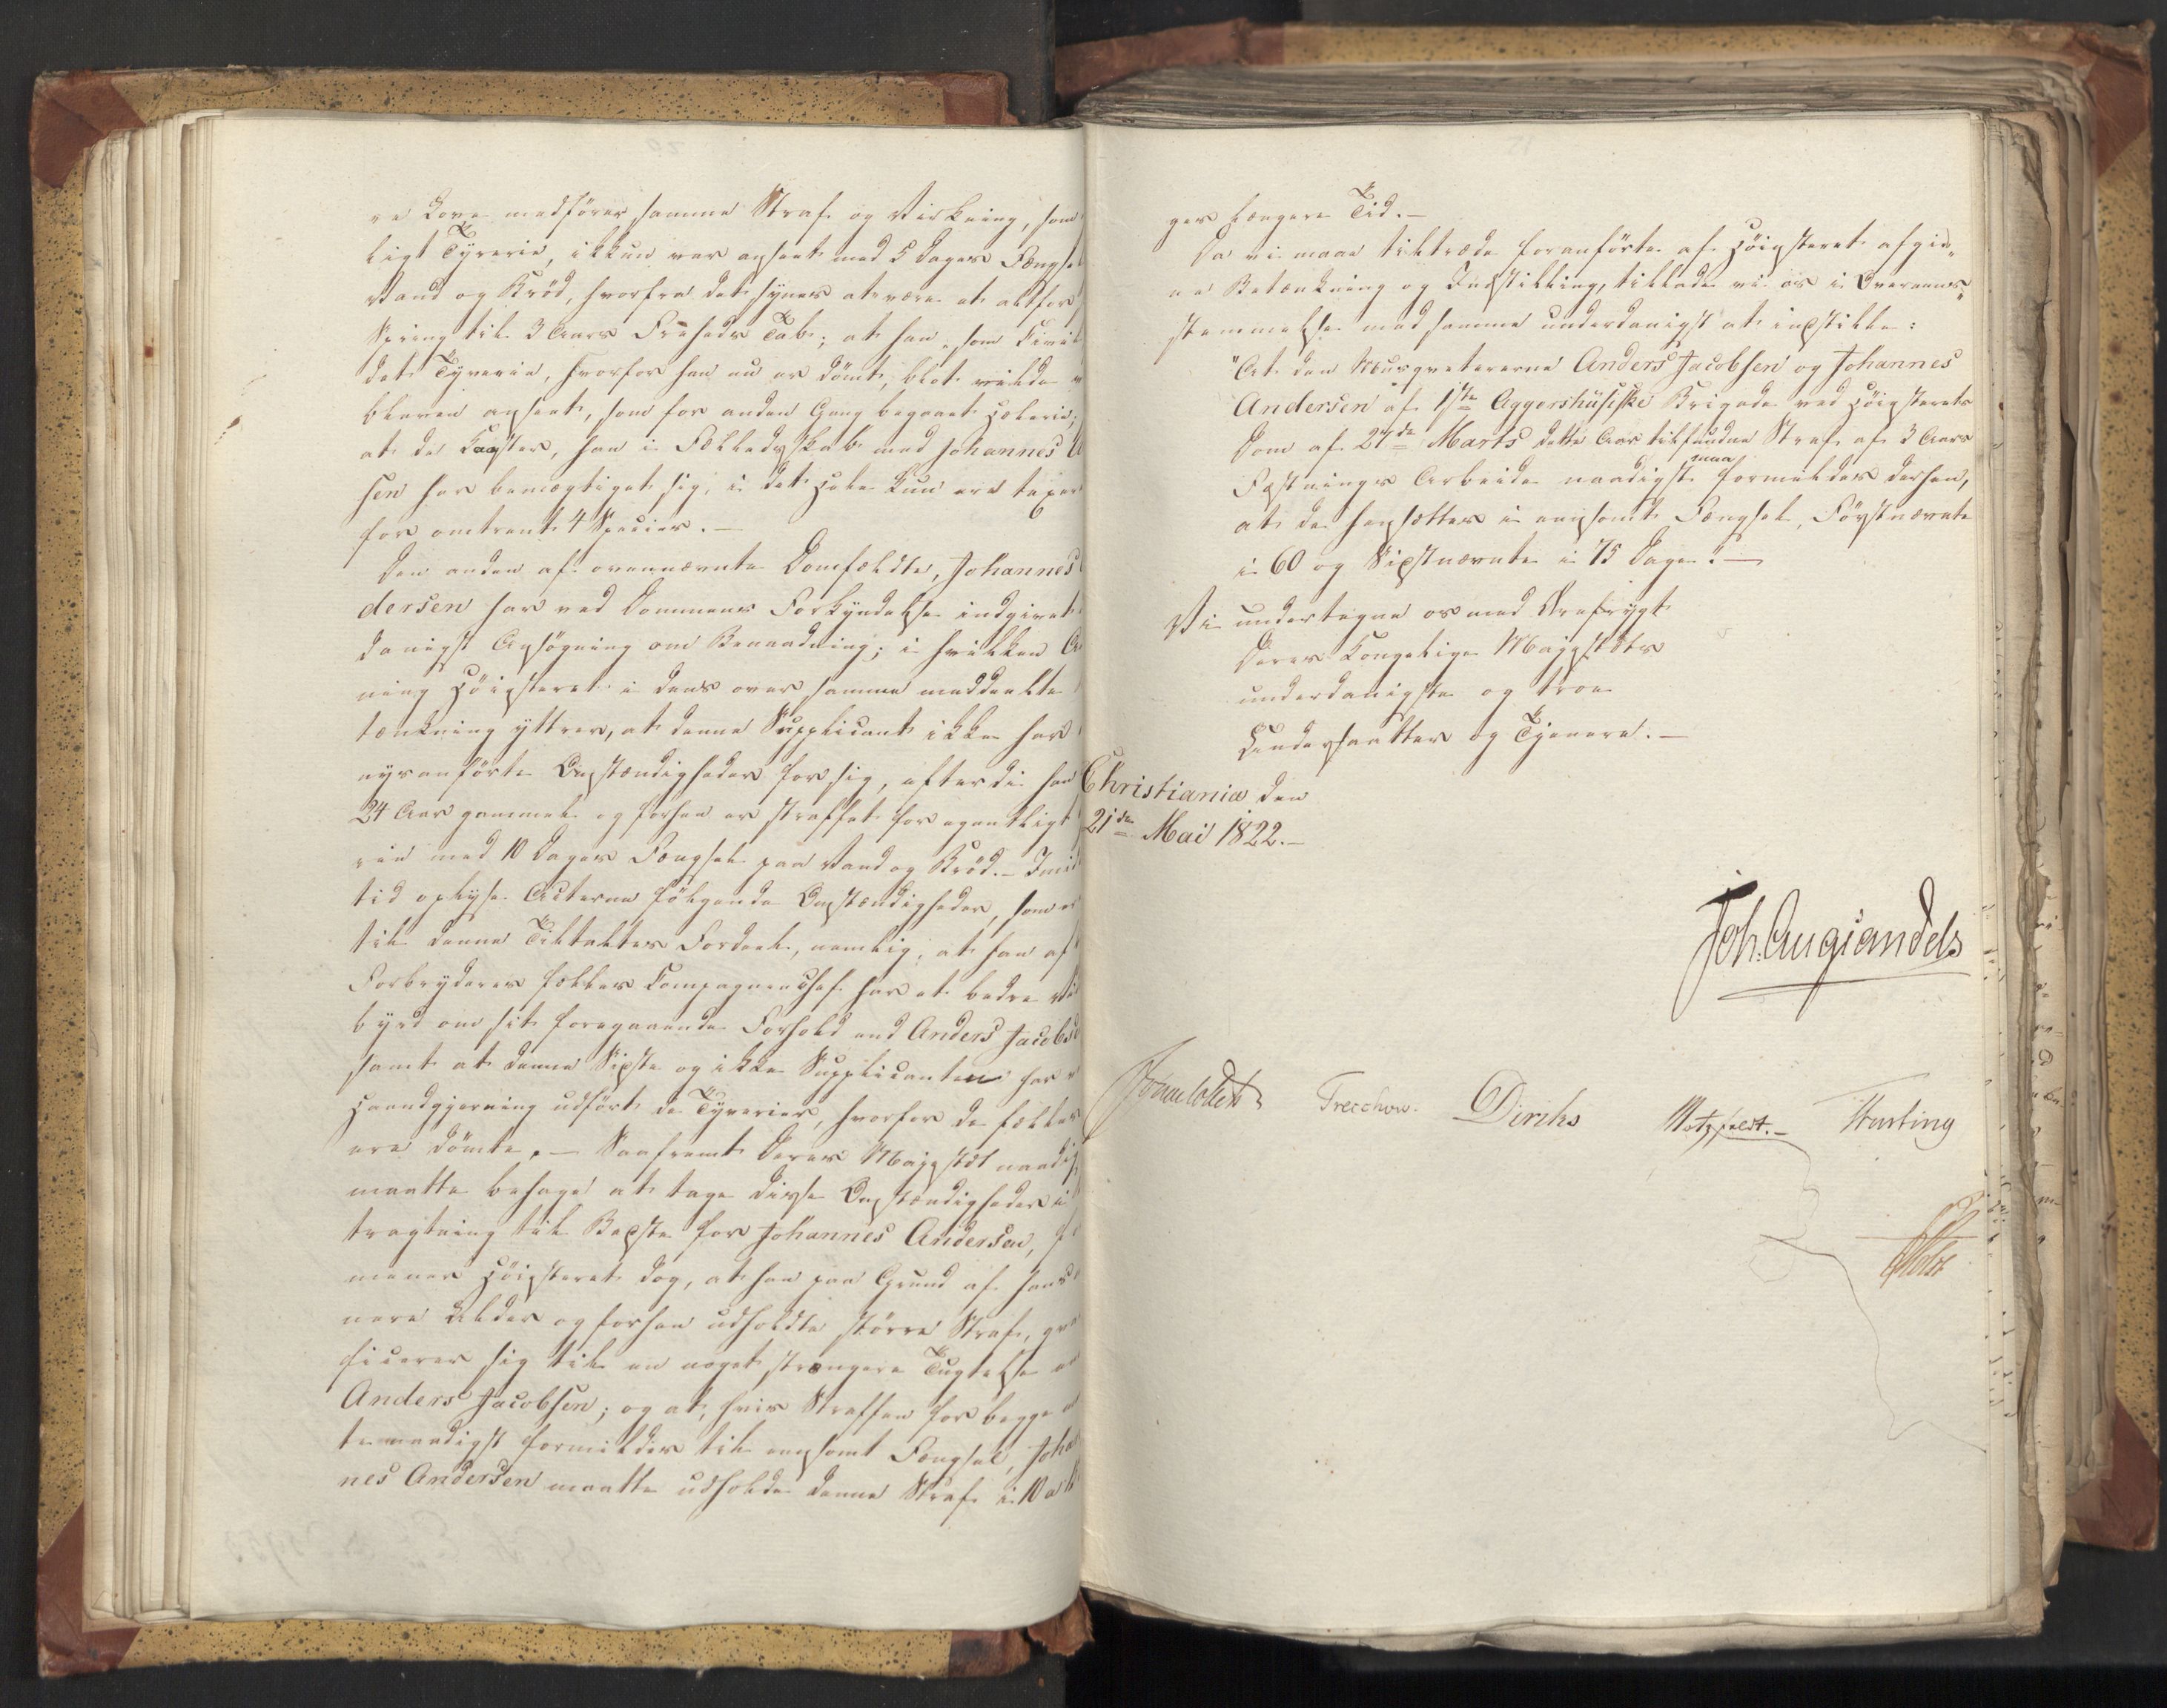 re Love medfører samme Straf og Virkning, som
ligt Tyverie, ikkun var anseet med 5 Dages Fængse
Vand og Brød, hvorfra det synes at være et altfor
Spring til 3 Aars Friheds Tab; at han, som Civil
det Tyverie, hvorfor han nu er dömt, blot vilde
bleven anseet, som for anden Gang begaaet Hælerie;
at de Koster, han i Fælledsskab med Johannes A
sen har bemægtiget sig, i det Hele kun ere taxer
for omtrent 4 Species.-
Den anden af ovennævnte Domfældte, Johannes
dersen har ved Dommens Forkyndelse indgivet
danigst Ansøgning om Benaadning; i hvilken A
ning Höiesteret i dens over samme meddeelte
tænkning yttrer, at denne Supplicant ikke har
nysanförte Omstændigheder for sig, efterdi han
24 Aar gammel og forhen er straffet for egentligt
rie med 10 Dages Fængsel paa Vand og Brød.- Imid
tid oplyse Acterne fölgende Omstændigheder, som er
til denne Tiltaltes Fordeel, nemlig, at han af
Forbryderes fælles Compagniechef har et bedre Vid
byrd om sit foregaaende Forhold end Anders Jacobse
samt at denne Sidste og ikke Supplicanten har v
Haandgjerning udført de Tyverier, hvorfor de fælles
ere dömte.- Saafremt Deres Majestæt naadig
maatte behage at tage disse Omstændigheder i
tragtning til Bedste for Johannes Andersen, f
mener Höiesteret dog, at han paa Grund af hans
nere Alder og forhen udholdte större Straf, qva
ficerer sig til en noget strængere Tugtelse en
Anders Jacobsen; og at, hvis Straffen for begge
te naadigst formildes til eensomt Fængsel, Joha
nes Andersen maatte udholde denne Straf i 10 a 15
ges længere Tid.-
Da vi maae tiltræde foranførte af Höiesteret afgiv„
ne Betænkning og Indstilling, tillade vi os i Overeens„
stemmelse med samme underdanigst at indstille:
"At den Musqueterene Anders Jacobsen og Johannes
Andersen af 1ste Aggershusiske Brigade ved Höiesterets
Dom af 27de Marts dette Aar tilfundne Straf af 3 Aars
Fæstnings Arbeide naadigst maa formildes derhen,
at de hensættes i eensomt Fængsel, Förstnævnte
i 60 og Sidstnævnte i 75 Dage."-
Vi undertegne os med Ærefrygt
Deres Kongelige Majestæts
underdanigste og troe
Undersaatter og Tjenere.-
Christiania den
21de Mai 1822.-
Joh. Aug. Sandels
Sommerhielm Treschow. Diriks Motzfeldt.- Fasting
Holst